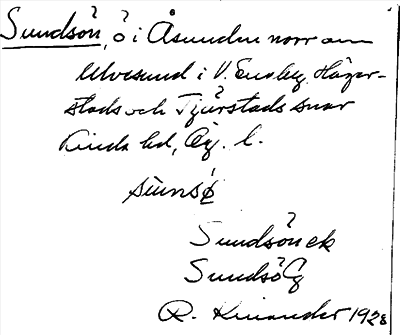 Sundsön, ö i Åsunden norr om
Ulvesund i V. Eneby, Häger-
stads och Tjärstads snar
Kinda hd, Ög. l.
sùnsǿ
Sundsön ek
Sundsö Eg
R. Kinander 1928